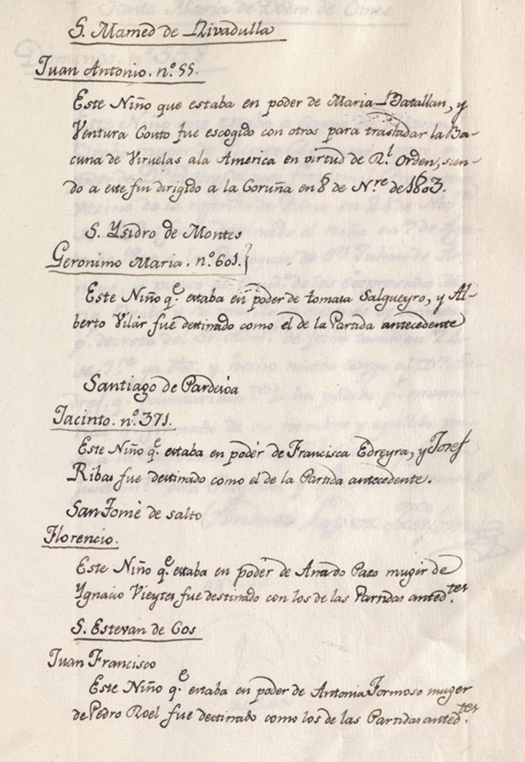 S. Mamed de Rivadulla
Juan Antonio. nº. 55.
Este Niño que estaba en poder de Maria Batallan, y
Ventura Couto fue escogido con otros para trasladar la Ba-
cuna de Viruelas ala America en virtud de Rl. Orden, sien-
do a este fin dirigido a la Coruña en 8 de Nre. de 1803.
S. Ysidro de Montes
Geronimo Maria. nº. 601.
Este Niño qe. estaba en poder de tomasa Salgueyro, y Al-
berto Vilar fue destinado como el de la Partida antecedente
Santiago de Pardesoa
Jacinto. nº. 371.
Este Niño qe. estaba en poder de Francisca Edreyra, y Josef
Ribas fue destinado como el de la Partida antecedente.
San Tomé de salto
Florencio.
Este Niño qe. estaba en poder de Ana do Pazo muger de
Ygnacio Vieytes, fue destinado con los de las Partidas anted.tes
S. Estevan de Cos
Juan Francisco
Este Niño qe. estaba en poder de Antonia Formoso muger
de Pedro Roel fue destinado como los de las Partidas anted.tes